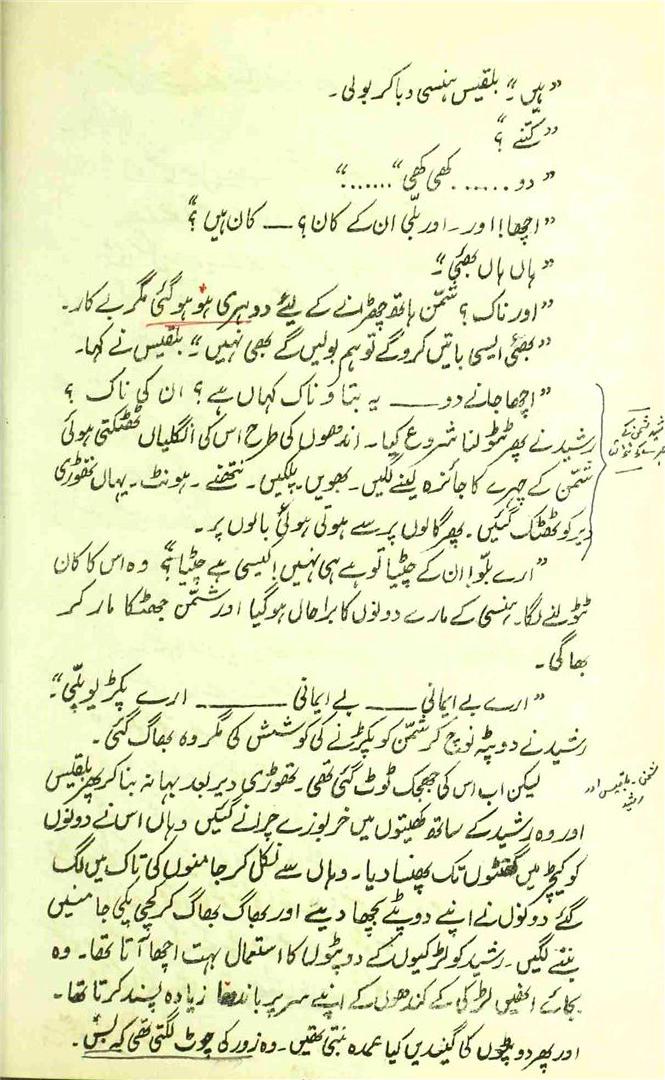 ”ہیں۔“ بلقیس ہنسی دبا کر بولی۔
”کتنے؟“
”دو ...... کھی کھی“ .......“
”اچھا! اور۔ اور بلّی ان کے کان؟ — کان ہیں؟“
ہاں ہاں بھئی۔“
”اور ناک؟ شمّن ہاتھ چھڑانے کے لیئے دوہری ہو ہو گئی مگر بے کار۔
”بھئی ایسی باتیں کرو گے تو ہم بولیں گے بھی نہیں۔“ بلقیس نے کہا۔
”اچھا جانے دو — یہ بتاؤ ناک کہاں ہے؟ ان کی ناک؟
رشید نے پھر ٹٹولنا شروع کیا۔ اندھوں کی طرح اس کی انگلیاں ٹھٹکتی ہوئی
شمّن کے چہرے کا جائزہ لینے لگیں۔ بھویں۔ پلکیں۔ نتھنے۔ ہونٹ۔ یہاں تھوڑی
دیر کو ٹھٹک گئیں۔ پھر گالوں پر سے ہوتی ہوئی بالوں پر۔
”ارے بلّو! ان کے چٹیا تو ہے ہی نہیں! کیسی ہے چٹیا؟“ وہ اس کا کان
ٹٹولنے لگا۔ ہنسی کے مارے دونوں کا برا حال ہو گیا اور شمّن جھٹکا مار کر
بھاگی۔
”ارے بے ایمانی — بے ایمانی — ارے پکڑیو بلّی۔“
رشید نے دوپٹہ نوچ کر شمّن کو پکڑنے کی کوشش کی مگر وہ بھاگ گئی۔
لیکن اب اس کی جھجک ٹوٹ گئی تھی۔ تھوڑی دیر بعد بہانہ بنا کر پھر بلقیس
اور وہ رشید کے ساتھ کھیتوں میں خربوزے چرانے گئیں وہاں اس نے دونوں
کو کیچڑ میں گھٹنوں تک پھنسا دیا۔ وہاں سے نکل کر جامنوں کی تاک میں لگ
گئے دونوں نے اپنے دوپٹے بچھا دیے اور بھاگ بھاگ کر کچی پکی جامنیں
بننے لگیں۔ رشید کو لڑکیوں کے دوپٹوں کا استعمال بہت اچھا آتا تھا۔ وہ
بجائے انھیں لڑکی کے کندھوں کے اپنے سر پر باندھنا زیادہ پسند کرتا تھا۔
اور پھر دوپٹوں کی گیندیں کیا عمدہ بنتی تھیں۔ وہ زور کی چوٹ لگتی تھی کہ بس۔
شمن۔ بلقیس اور
رشید